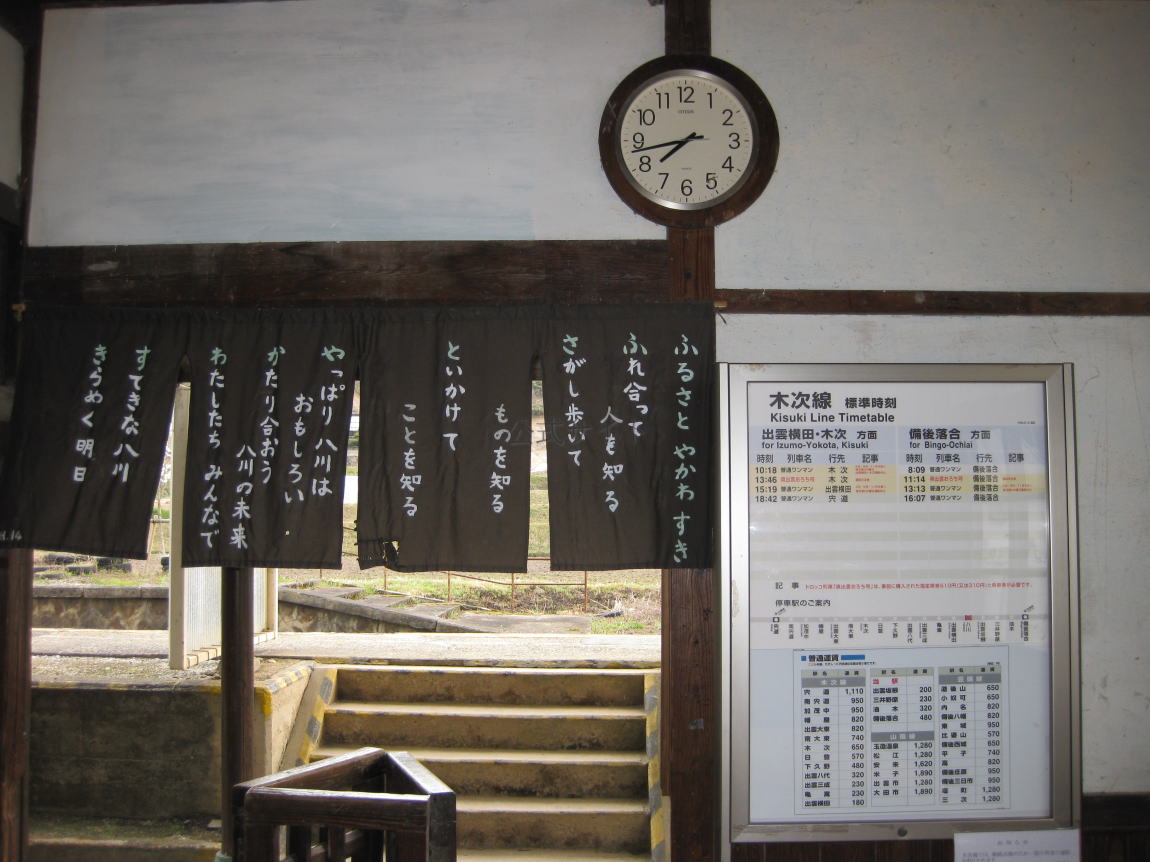 12
1
2
3
4
5
6
7
8
9
10
11
CITIZEN
ふるさと やかわ すき
ふれ合って
人も知る
さがし歩いて
ものを知る
といかけて
ことを知る
やっぱり八川は
おもしろい
かたり合おう
八川の未来
わたしたち みんなで
すてきな八川
きらめく明日
H.14
木次線 標準時刻
Kisuki Line Timetable
出雲横田・木次 方面
for Izumo-Yokota, Kisuki
時刻 列車名 行先 記事
10:18 普通ワンマン 木次
13:46 奥出雲おろち号 木次
15:19 普通ワンマン 出雲横田
18:42 普通ワンマン 宍道
備後落合 方面
for Bingo-Ochiai
時刻 列車名 行先 記事
8:09 普通ワンマン 備後落合
11:14 奥出雲おろち号 備後落合
13:13 普通ワンマン 備後落合
16:07 普通ワンマン 備後落合
記事
停車駅のご案内
普通運賃
駅名 運賃
木次線
宍道 1,110
南宍道 950
加茂中 950
幡屋 820
出雲大東 820
南大東 740
木次 650
日登 570
下久野 480
出雲八代 320
出雲三成 230
亀嵩 230
出雲横田 180
駅名 運賃
当駅
出雲坂根 200
三井野原 230
油木 320
備後落合 480
山陰線
玉造温泉 1,280
松江 1,280
安来 1,620
米子 1,890
出雲市 1,280
大田市 1,890
駅名 運賃
芸備線
道後山 650
小奴可 650
内名 820
備後八幡 820
東城 950
比婆山 570
備後西城 650
平子 740
高 820
備後庄原 950
備後三日市 950
塩町 1,280
三次 1,280
お知らせ